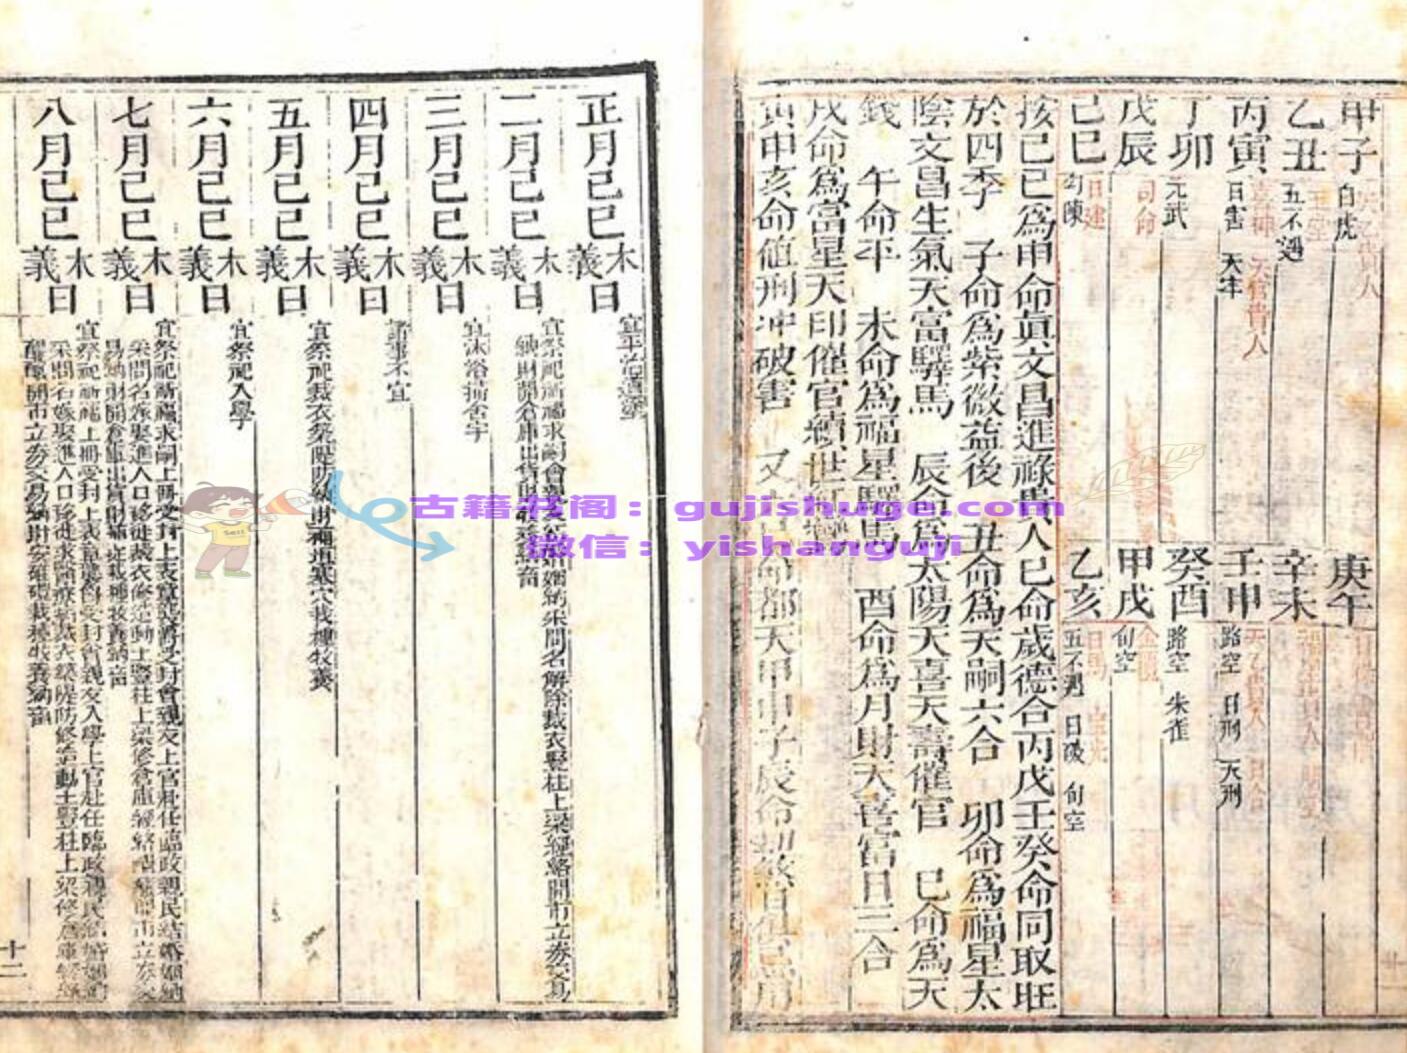 甲子 白虎 天乙貴人
乙丑 玉堂 五不遇
丙寅 喜神 天官貴人 日害 天牢
丁卯 元武
戊辰 司命
己巳 日建 勾陳
庚午
辛未
壬申 天乙貴人 路空 日刑 天刑
癸酉 路空 朱雀
甲戌 金匱 旬空
乙亥 五不遇 日破 旬空
按己巳爲甲命眞文昌進祿貴人己命歲德合丙戊壬癸命同取旺
於四季 子命爲紫微益後 丑命爲天嗣六合 卯命爲福星太
陰文昌生氣天富驛馬 辰命爲太陽天喜天壽催官 巳命爲天
錢 午命平 未命爲福星驛馬 酉命爲月財天喜富日三合
戌命爲富星天印催官續世
寅申亥命值刑冲破害 又
正月己巳 木義日 宜平治道塗
二月己巳 木義日 宜祭祀祈福求嗣
納采問名解除裁衣豎柱上梁經絡開市立券交易
納財開倉庫出貨財
三月己巳 木義日 宜沐浴掃舍宇
四月己巳 木義日 諸事不宜
五月己巳 木義日 宜祭祀裁衣築隄防納財補垣塞穴栽種牧養
六月己巳 木義日 宜祭祀入學
七月己巳 木義日 宜祭祀祈福求嗣上冊受封上表章襲爵受封會親友上官赴任臨政親民結婚姻納
采問名嫁娶進人口移徙裁衣修造動土豎柱上梁修倉庫經絡醞釀開市立券交
易納財開倉庫出貨財
栽種牧養納畜
八月己巳 木義日 宜祭祀祈福上冊受封上表章襲爵受封會親友入學上官赴任臨政親民結婚姻納
采問名嫁娶進人口移徙求醫療病裁衣築隄防修造動土豎柱上梁修倉庫經絡
醞釀開市立券交易納財安碓磑栽種牧養納畜
十二
古籍书阁：gujishuge.com
微信：yishanguji